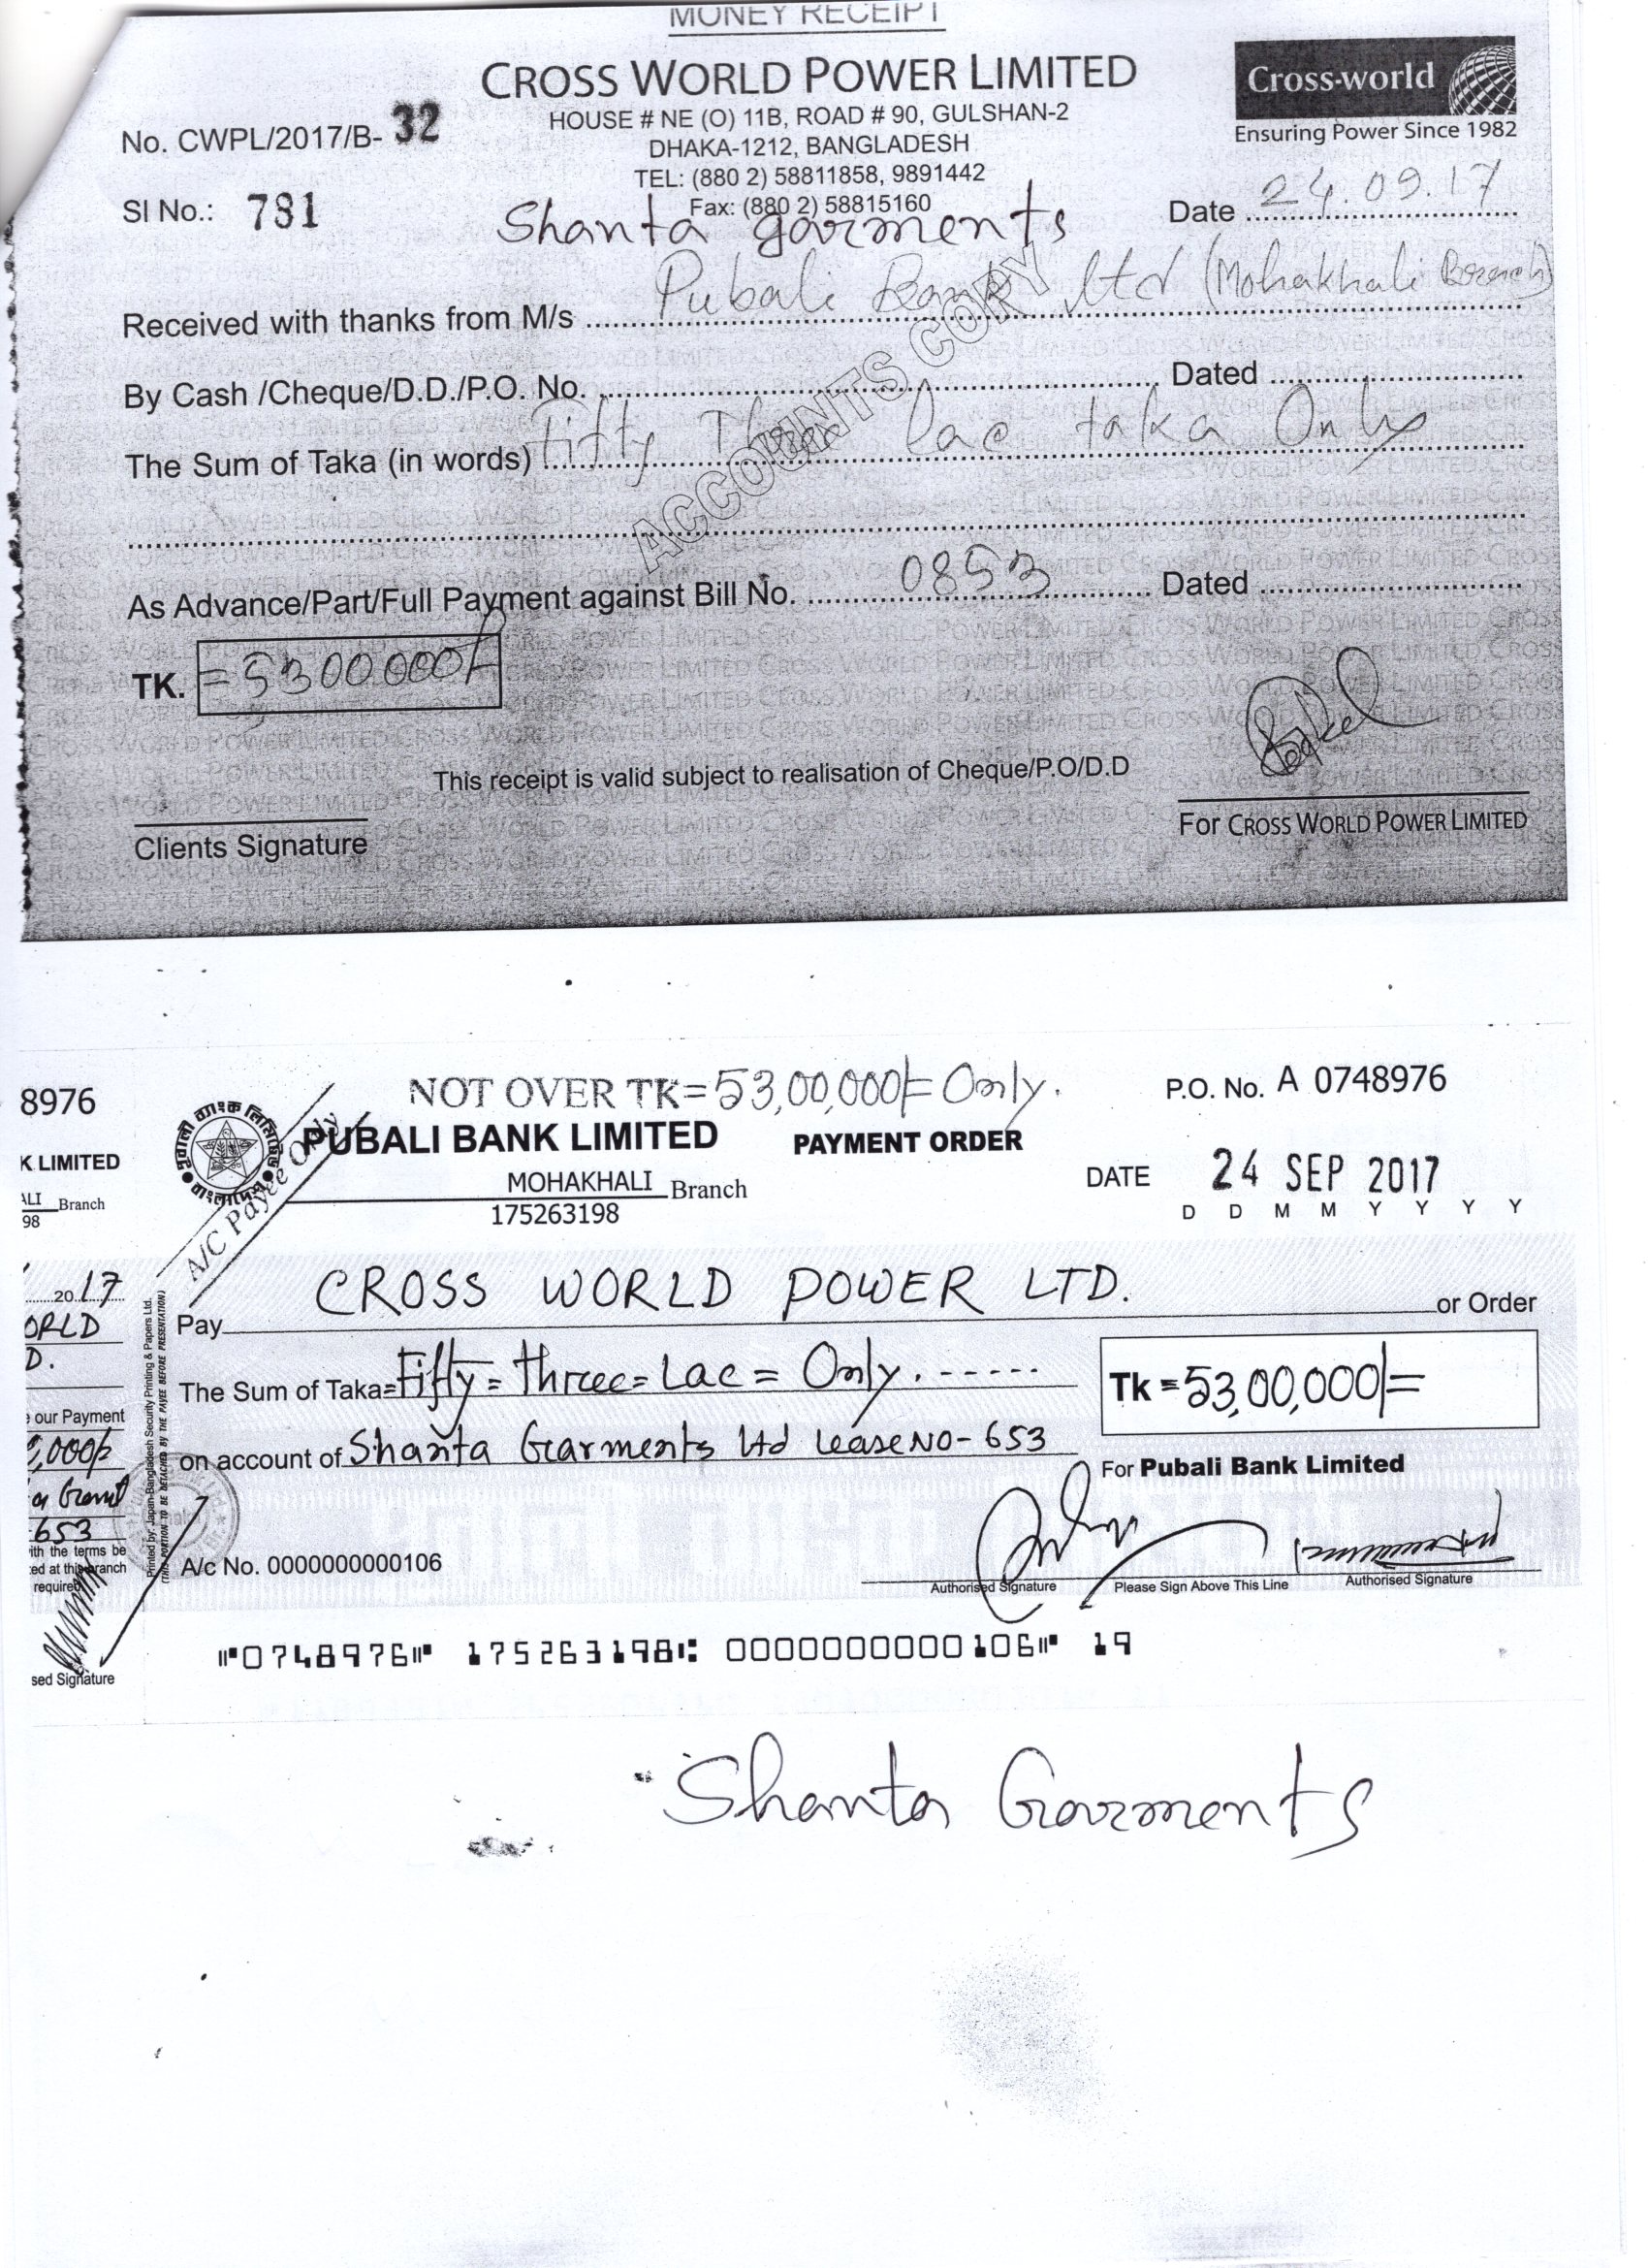 MONEY RECEIPT
CROSS WORLD POWER LIMITED
HOUSE # NE (O) 11B, ROAD # 90, GULSHAN-2
DHAKA-1212, BANGLADESH
TEL: (880 2) 58811858, 9891442
Fax: (880 2) 58815160
Cross-world
Ensuring Power Since 1982
No. CWPL/2017/B- 32
Sl No.: 781
Date 24.09.17
Shanta garments
Received with thanks from M/s Pubali Bank ltd (Mohakhali Branch)
By Cash /Cheque/D.D./P.O. No. Dated
The Sum of Taka (in words) Fifty Three lac taka Only
ACCOUNTS COPY
As Advance/Part/Full Payment against Bill No. 0853 Dated
TK. =5300000/-
This receipt is valid subject to realisation of Cheque/P.O/D.D
Clients Signature
For CROSS WORLD POWER LIMITED
8976
K LIMITED
ALI Branch
98
20 17
ORLD
D.
e our Payment
0,000/=
653
ith the terms be
ed at this branch
required
sed Signature
Printed by: Japan-Bangladesh Security Printing & Papers Ltd.
(THIS PORTION TO BE DETACHED BY THE PAYEE BEFORE PRESENTATION)
NOT OVER TK=53,00,000/= Only.
P.O. No. A 0748976
পুবালী ব্যাংক লিমিটেড
বাংলাদেশ
A/C Payee Only
PUBALI BANK LIMITED PAYMENT ORDER
MOHAKHALI Branch
175263198
DATE 24 SEP 2017
D D M M Y Y Y Y
Pay CROSS WORLD POWER LTD. or Order
The Sum of Taka=Fifty=three=Lac= Only.-----
Tk=53,00,000/=
on account of Shanta Garments Ltd Lease NO- 653
For Pubali Bank Limited
A/c No. 0000000000106
Authorised Signature Please Sign Above This Line Authorised Signature
⑈0748976⑈ 175263198⑆ 0000000000106⑈ 19
Shanta Garments